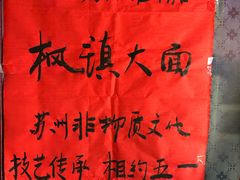 枫镇大面
苏州非物质文化
技艺传承 相约五一